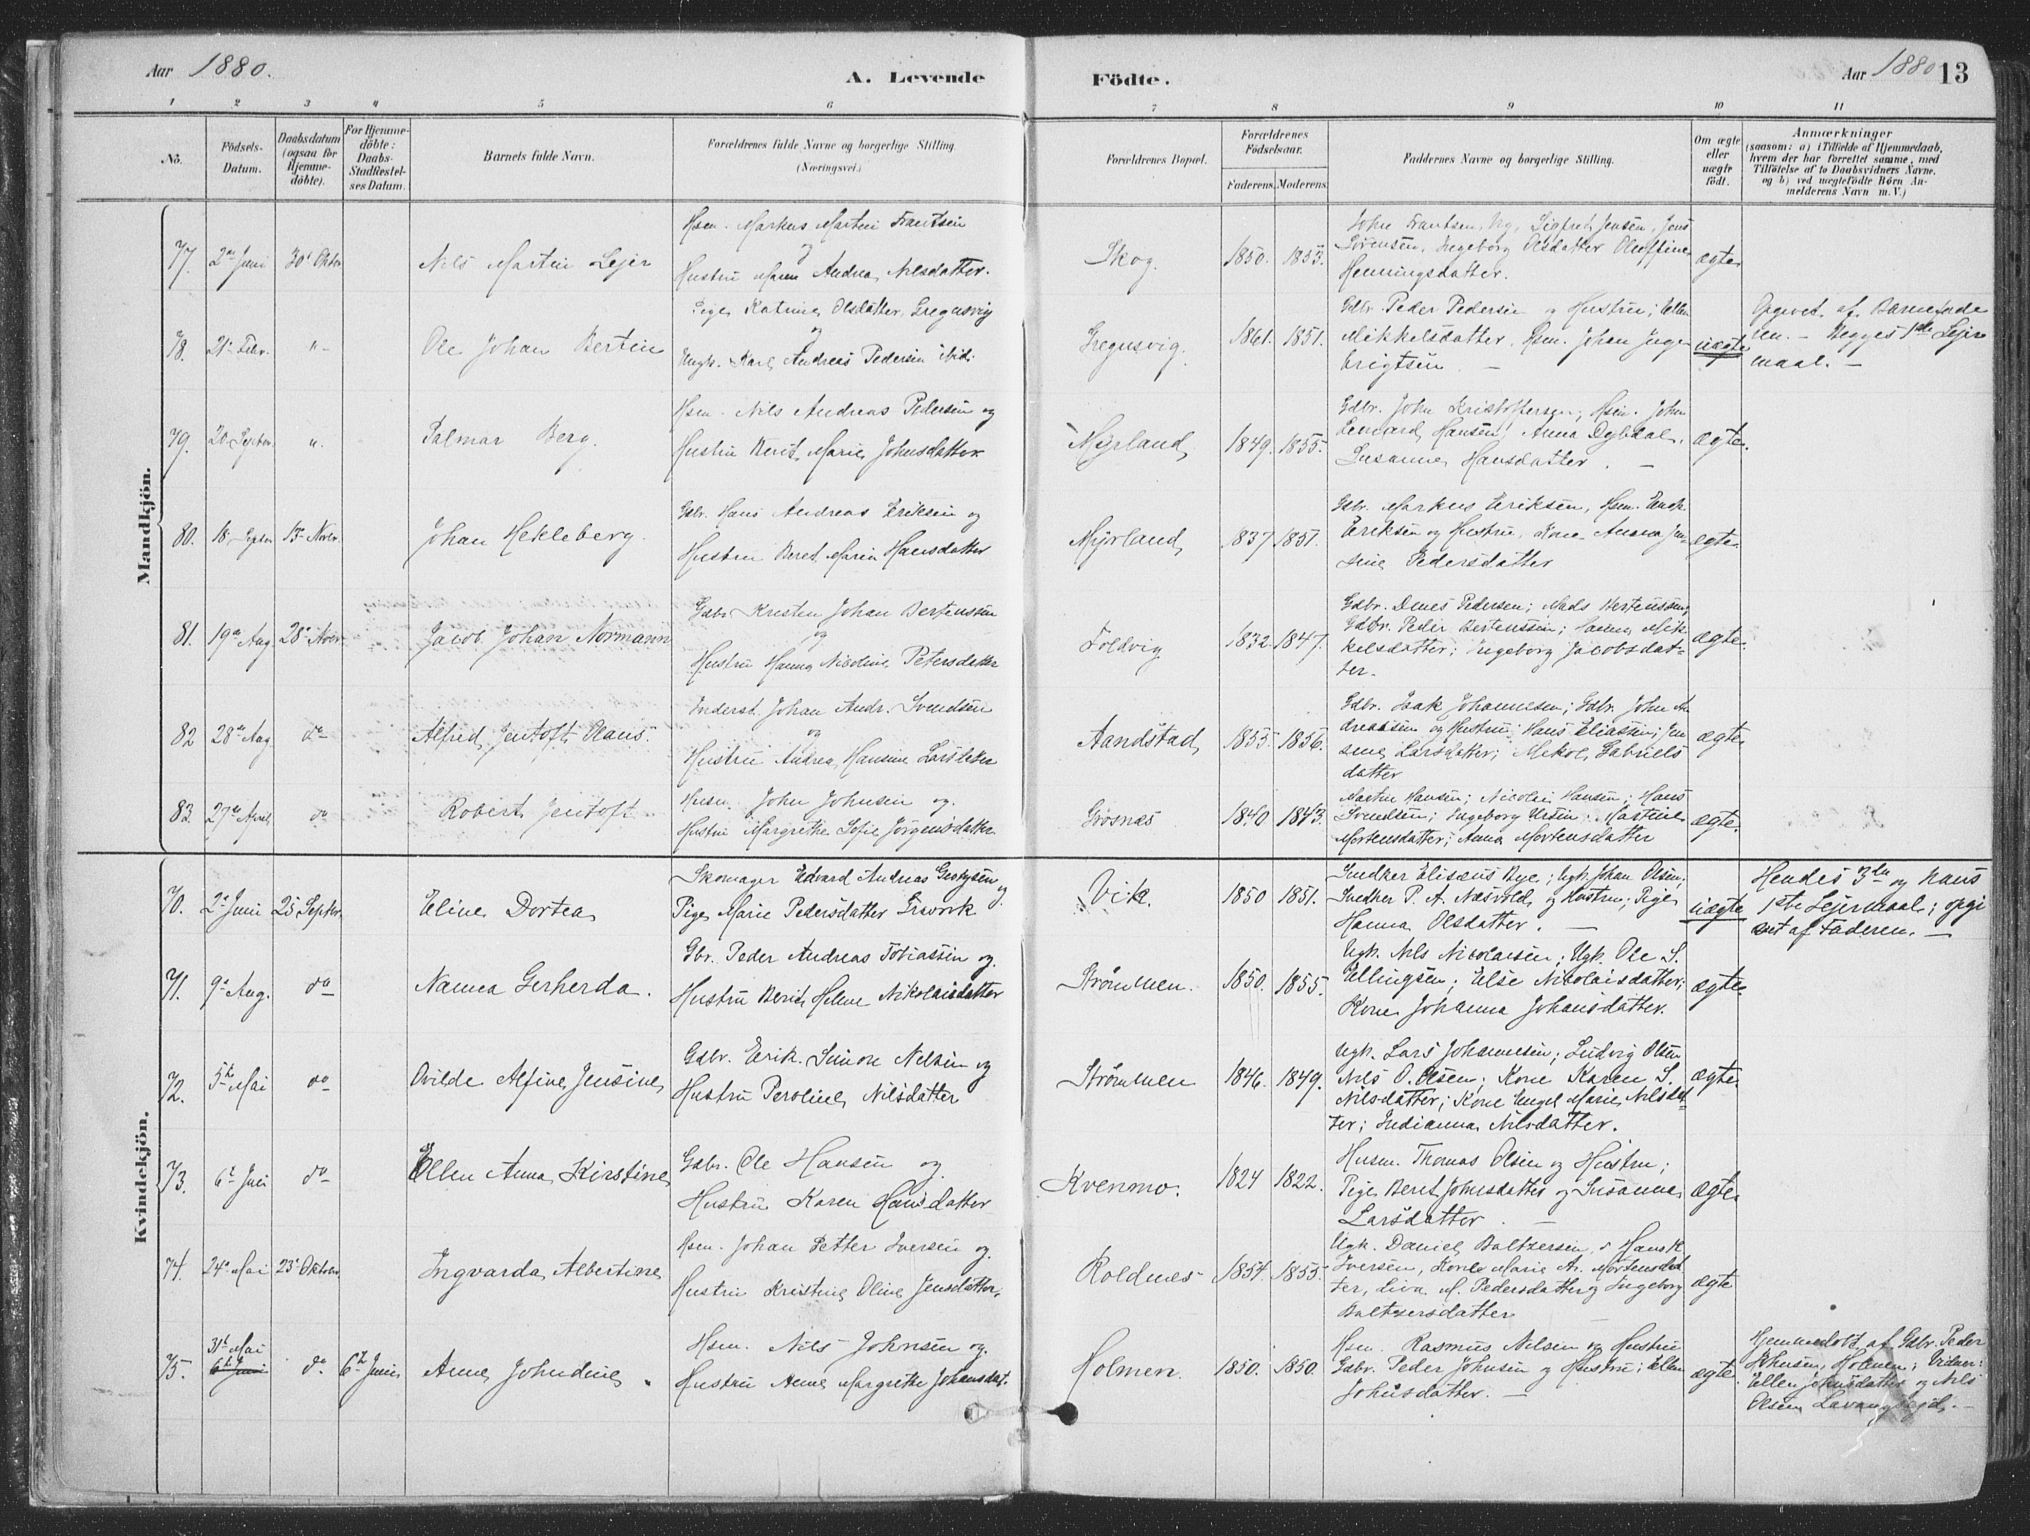 Aar 1880.
A. Levende
Fødte.
Aar 1880 13
1 2 3 4 5 6 7 8 9 10 11
No.
Fødsels-Datum.
Daabsdatum (ogsaa for Hjemme-døbte).
For Hjemme-døbte: Daabs-Stadfestel-ses Datum.
Barnets fulde Navn.
Forældrenes fulde Navne og borgerlige Stilling. (Næringsvei.)
Forældrenes Bopæl.
Forældrenes Fødselsaar.
Faderens. Moderens.
Faddernes Navne og borgerlige Stilling.
Om ægte eller uægte født.
Anmærkninger
(saasom: a) i Tilfælde af Hjemmedaab, hvem der har forrettet samme, med Tilføielse af to Daabsvidners Navne, og b) ved uægtefødte Børn An-melderens Navn m. V.)
Mandkjön.
77. 2den Juni 30te Oktbr Nils Martin Lejer
Hsm. Markus Martin Frantsen
og
Hustru Andrea Nilsdatter.
Skog. 1850. 1853.
John Frantsen, Sigfred Jensen, Jens
Sørensen, Ingeborg Olsdatter Oluffine
Henningsdatter.
ægte
78. 21de Febr. " Ole Johan Bertin
Pige Katrine Olsdatter, Gregusvig
og
Ungk. Karl Andreas Pedersen ibid.
Gregusvig. 1861. 1851.
Gdbr. Peder Pedersen og Hustru; Ellen
Mikkelsdatter, Hsm. Johan Inge-
brigtsen. —
uægte
Opgivet af Barnefade
ren. — Begges 1ste Lejer
maal. —
79. 20. Septbr. " Palmar Berg.
Hsm. Nils Andreas Pedersen og
Hustru Berit Marie Johnsdatter
Myrland 1849. 1855.
Gdbr. John Kristoffersen; Hsm. John
Lenvard Hansen; Anna Dybdal,
Susanne Hansdatter. —
ægte.
80. 18. Septbr 13de Novbr. Johan Hekleberg.
Gdbr. Hans Andreas Eriksen og
Hustru Beret Maria Hansdatter
Myrland 1837 1851.
Gdbr. Markus Eriksen, Hsm. Enok
Eriksen og Hustru, Kone Anna Jen-
sine Pedersdatter
ægte
81. 19de Aug 28de Novbr. Jacob Johan Normann
Gdbr Kristen Johan Bertenssen
og
Hustru Hanna Nicoline Petersdatter
Foldvig 1832. 1847.
Gdbr. Denes Pedersen; Mads Bertenssen;
Gdbr. Peder Bertenssen; Mik-
kelsdatter; Ingeborg Jacobsdat-
ter.
ægte.
82 28de Aug do Alfred Jentoft Claus.
Inderst. Johan Andr. Svendsen
og
Hustru Andrea Hansine Larsdatter
Aandstad 1855. 1856.
Gdbr. Isak Johannesen; Gdbr. John An
dreassen og Hustru; Hans Eliassen; Jen
sine Larsdatter; Mekol Gabriels
datter
ægte
83. 27de April do Robert Jentoft
Husm. John Johnsen og.
Hustru Margrethe Sofie Jørgensdatter
Grøsnæs 1840 1843.
Martin Hansen; Nicolai Hansen; Hans
Svendsen; Ingeborg Martine
Mortensdatter; Anna Mortensdatter
ægte.
Kvindekjön.
70. 2de Juni 25 Septbr. Eline Dortea
Skomager Edvard Andreas og
Pige Marie Pedersdatter Gravrok
Vik. 1850 1851.
Snedker Elisæus Bye; Ugk. Johan Olsen;
Snedker P. A. Næsvold og Hustru; Pige
Hanna Olsdatter. —
uægte
Hendes 3die og hans
1ste Lejermaal; opgi
vet af Faderen. —
71. 9de Aug. do Nanna Gerherda.
Gbr. Peder Andreas Tobiassen og.
Hustru Berit Helene Nikolaisdatter
Strømmen. 1850. 1855.
Ugk. Nils Nicolaisen; Ugk. Ole S.
Ellingsen; Else Nicolaisdatter;
Kone Johanna Johansdatter.
ægte
72. 5te Mai do Ovilde Alfine Jensine
Gdbr. Erik Simon Nelsen og
Hustru Peroline Nilsdatter
Strømmen 1846. 1849.
Ugk. Lars Johannesen; Ludvig Olsen
Nils O. Olsen; Kone Karen S.
Nilsdatter; Kone Engel Marie Nilsdat-
ter; Indianna Nilsdatter.
ægte
73. 6te Juli do Ellen Anna Kirstine
Gdbr. Ole Hansen og.
Hustru Karen Hansdatter
Kvenmo. 1824 1822.
Husm. Thomas Olsen og Hustru;
Pige Beret Johnsdatter og Susanna
Larsdatter. —
ægte
74. 24de Mai 23de Oktober Ingvarda Albertine
Hsm. Johan Petter Iversen og.
Hustru Kristine Oline Jensdatter.
Roldnes 1854. 1855
Ugk. Daniel Baltzersen, Hans K.
Iversen, Kone Marie A. Mortensdat
ter, Liva M. Pedersdatter og Ingeborg
Baltzersdatter
ægte
75. 31te Mai 6te Juni do. 6te Juni Anne Johndine
Hsm. Nils Johnsen og.
Hustru Anne Margrethe Johansdat.
Holmen. 1850. 1850.
Hsm. Rasmus Nilsen og Hustru
Gdbr. Peder Johnsen og Hustru; Ellen
Johnsdatter. —
ægte
Hjemmedøbt af Gdbr. Peder
Johnsen, Holmen; Vidner:
Ellen Johnsdatter og Nils
Olsen Lavangsejd. —